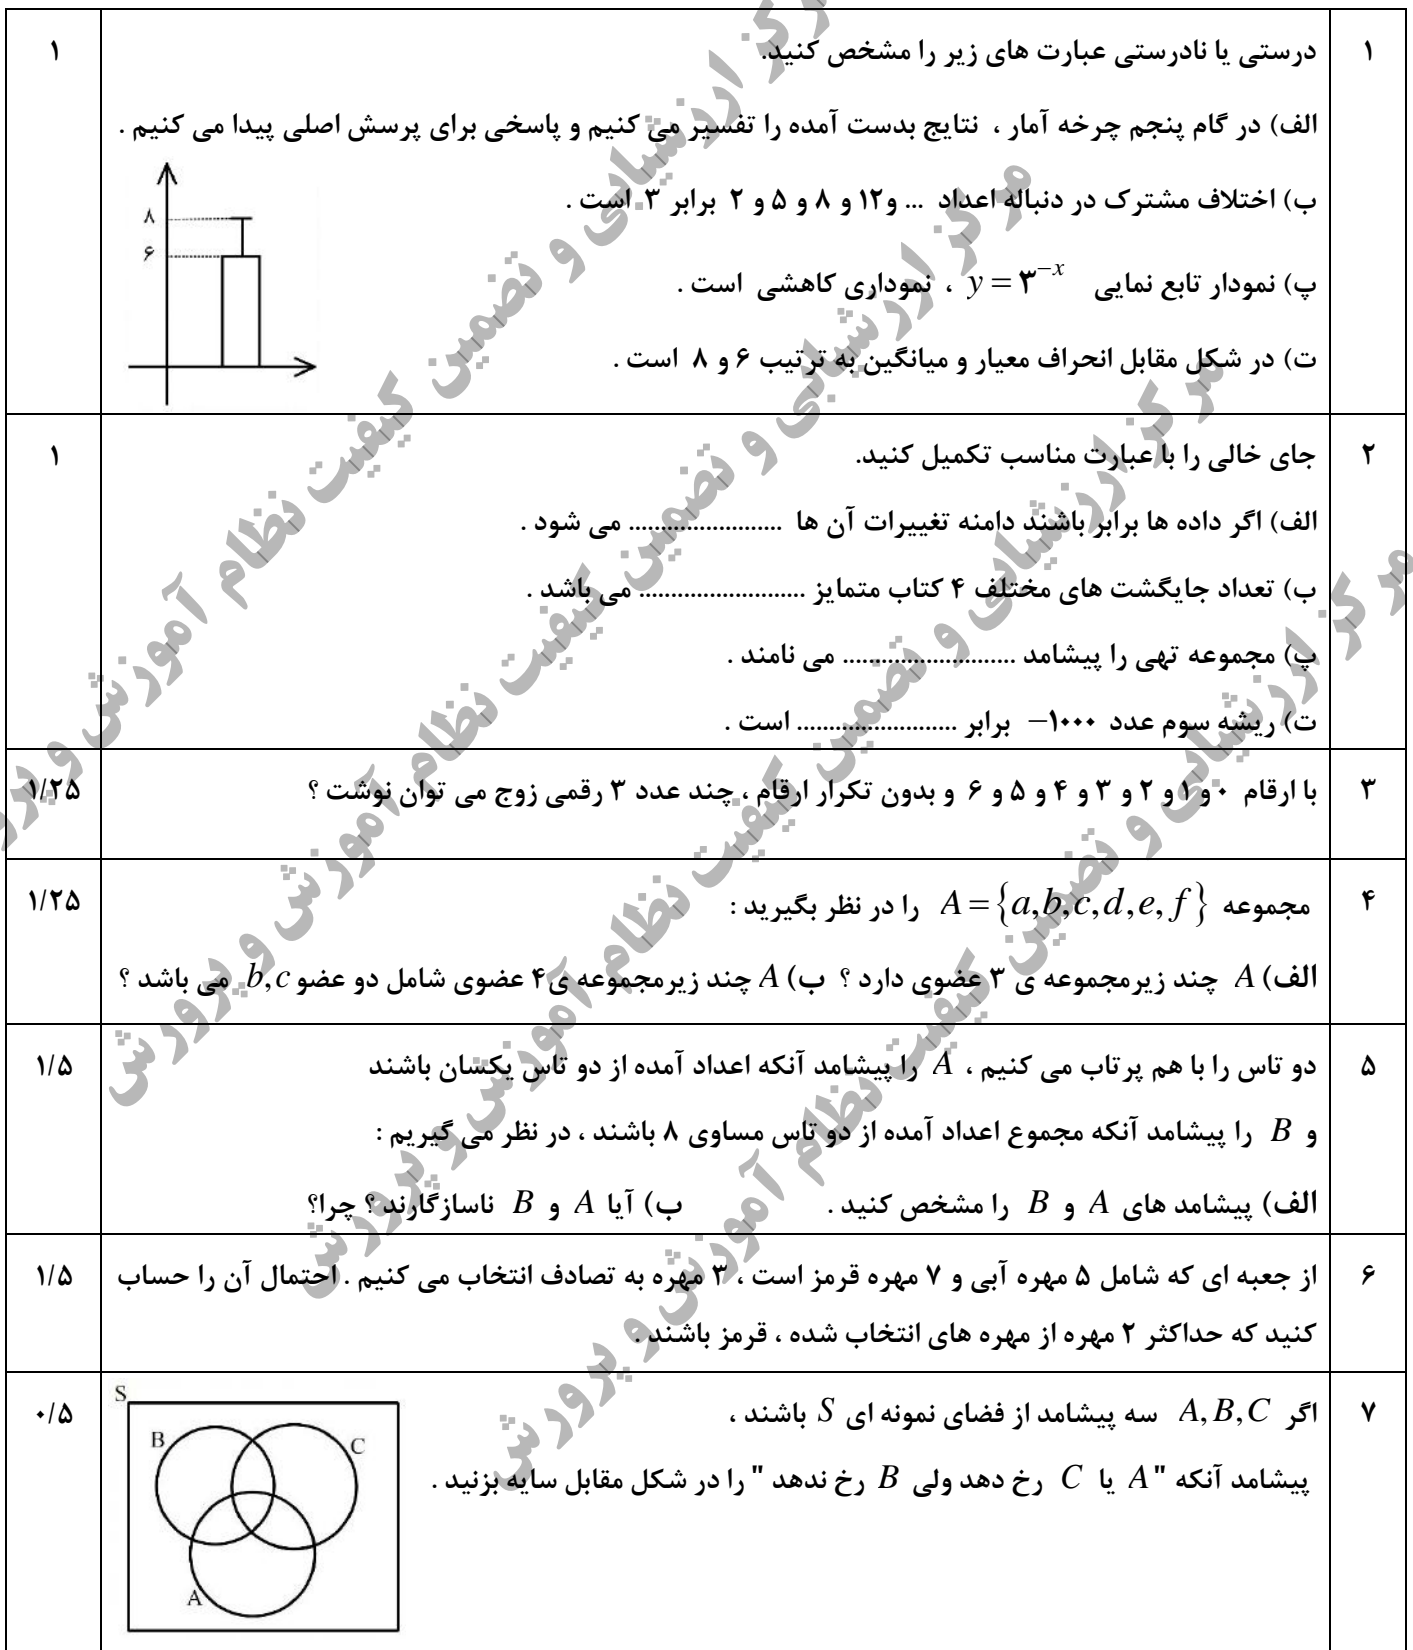 ۱ درستی یا نادرستی عبارت های زیر را مشخص کنید. ۱
الف) در گام پنجم چرخه آمار ، نتایج بدست آمده را تفسیر می کنیم و پاسخی برای پرسش اصلی پیدا می کنیم .
ب) اختلاف مشترک در دنباله اعداد ... و ۱۲ و ۸ و ۵ و ۲ برابر ۳ است .
پ) نمودار تابع نمایی y = ۳^{-x} ، نموداری کاهشی است .
ت) در شکل مقابل انحراف معیار و میانگین به ترتیب ۶ و ۸ است .
۸
۶
۲ جای خالی را با عبارت مناسب تکمیل کنید. ۱
الف) اگر داده ها برابر باشند دامنه تغییرات آن ها ........................ می شود .
ب) تعداد جایگشت های مختلف ۴ کتاب متمایز .......................... می باشد .
پ) مجموعه تهی را پیشامد .......................... می نامند .
ت) ریشه سوم عدد ۱۰۰۰− برابر ......................... است .
۳ با ارقام ۰ و ۱ و ۲ و ۳ و ۴ و ۵ و ۶ و بدون تکرار ارقام ، چند عدد ۳ رقمی زوج می توان نوشت ؟ ۱/۲۵
۴ مجموعه A = {a,b,c,d,e,f} را در نظر بگیرید : ۱/۲۵
الف) A چند زیرمجموعه ی ۳ عضوی دارد ؟ ب) A چند زیرمجموعه ی ۴ عضوی شامل دو عضو b,c می باشد ؟
۵ دو تاس را با هم پرتاب می کنیم ، A را پیشامد آنکه اعداد آمده از دو تاس یکشان باشند ۱/۵
و B را پیشامد آنکه مجموع اعداد آمده از دو تاس مساوی ۸ باشند ، در نظر می گیریم :
الف) پیشامد های A و B را مشخص کنید . ب) آیا A و B ناسازگارند ؟ چرا؟
۶ از جعبه ای که شامل ۵ مهره آبی و ۷ مهره قرمز است ، ۳ مهره به تصادف انتخاب می کنیم . احتمال آن را حساب ۱/۵
کنید که حداکثر ۲ مهره از مهره های انتخاب شده ، قرمز باشند .
۷ اگر A,B,C سه پیشامد از فضای نمونه ای S باشند ، ۰/۵
پیشامد آنکه "A یا C رخ دهد ولی B رخ ندهد " را در شکل مقابل سایه بزنید .
S
B
C
A
مرکز ارزشیابی و تضمین کیفیت نظام آموزش و پرورش
مرکز ارزشیابی و تضمین کیفیت نظام آموزش و پرورش
مرکز ارزشیابی و تضمین کیفیت نظام آموزش و پرورش
مرکز ارزشیابی و تضمین کیفیت نظام آموزش و پرورش